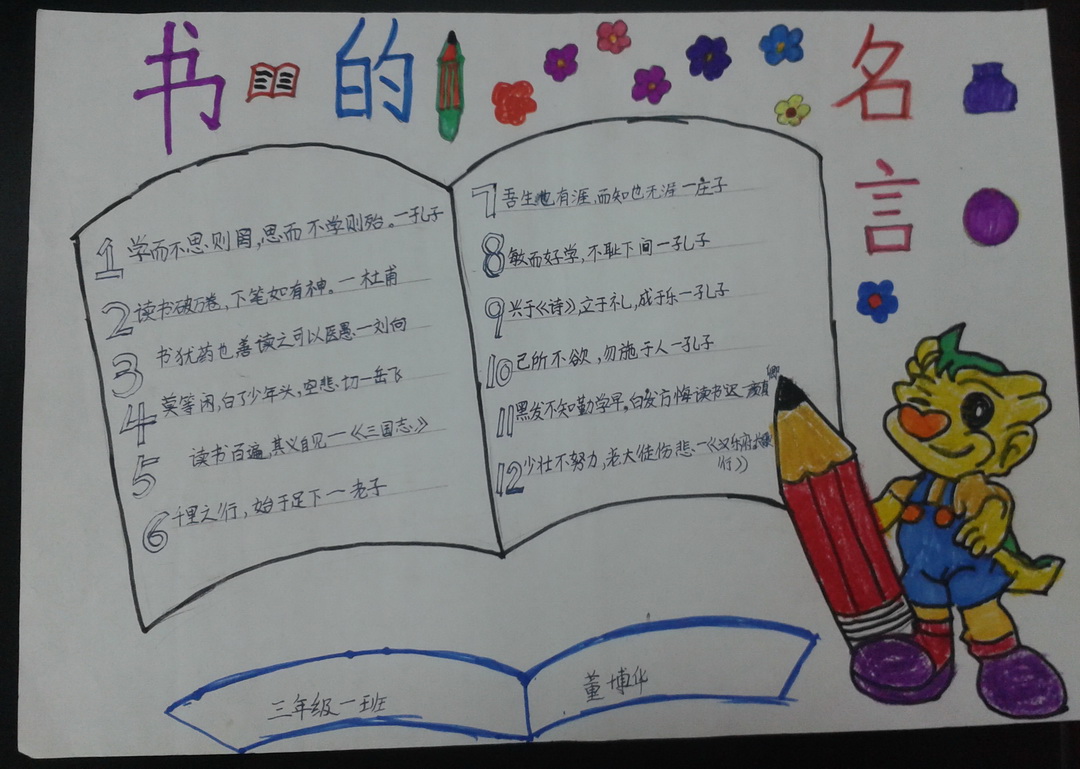 书的名言
1 学而不思则罔,思而不学则殆。一孔子
2 读书破万卷,下笔如有神。一杜甫
3 书犹药也善读之可以医愚一刘向
4 莫等闲,白了少年头,空悲切一岳飞
5 读书百遍,其义自见一《三国志》
6 千里之行,始于足下一老子
7 吾生也有涯,而知也无涯一庄子
8 敏而好学,不耻下问一孔子
9 兴于《诗》,立于礼,成于乐一孔子
10 己所不欲,勿施于人一孔子
11 黑发不知勤学早,白发方悔读书迟一颜真卿
12 少壮不努力,老大徒伤悲一《汉乐府
行》
三年级一班
董博华